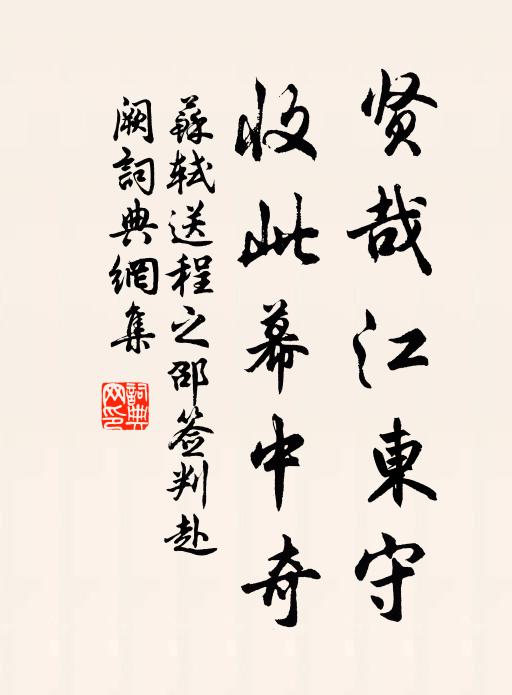 贤哉江東守
收此幕中奇
蘇轼送程之邵签判赴
阙詞典網集
詞典
网印